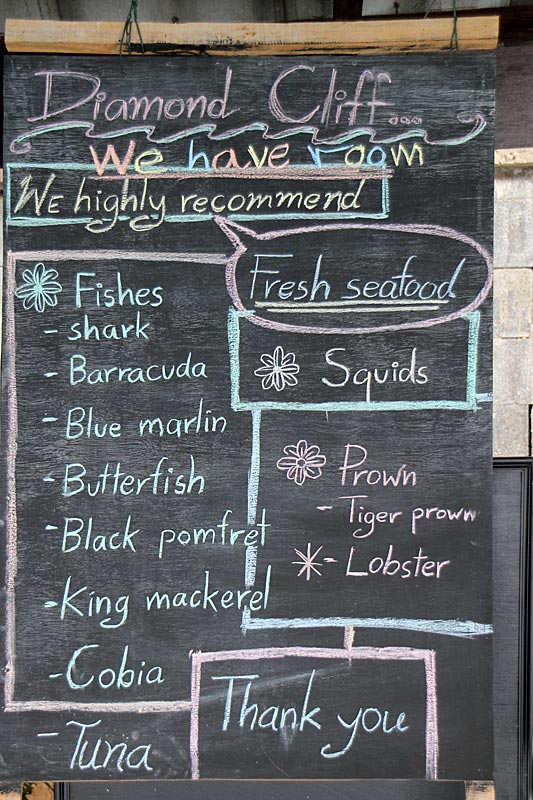 Diamond Cliff...
We have room
WE highly recommend
Fresh seafood
Fishes
- shark
- Barracuda
- Blue marlin
- Butterfish
- Black pomfret
- King mackerel
- Cobia
- Tuna
Squids
Prown
- Tiger prown
- Lobster
Thank you